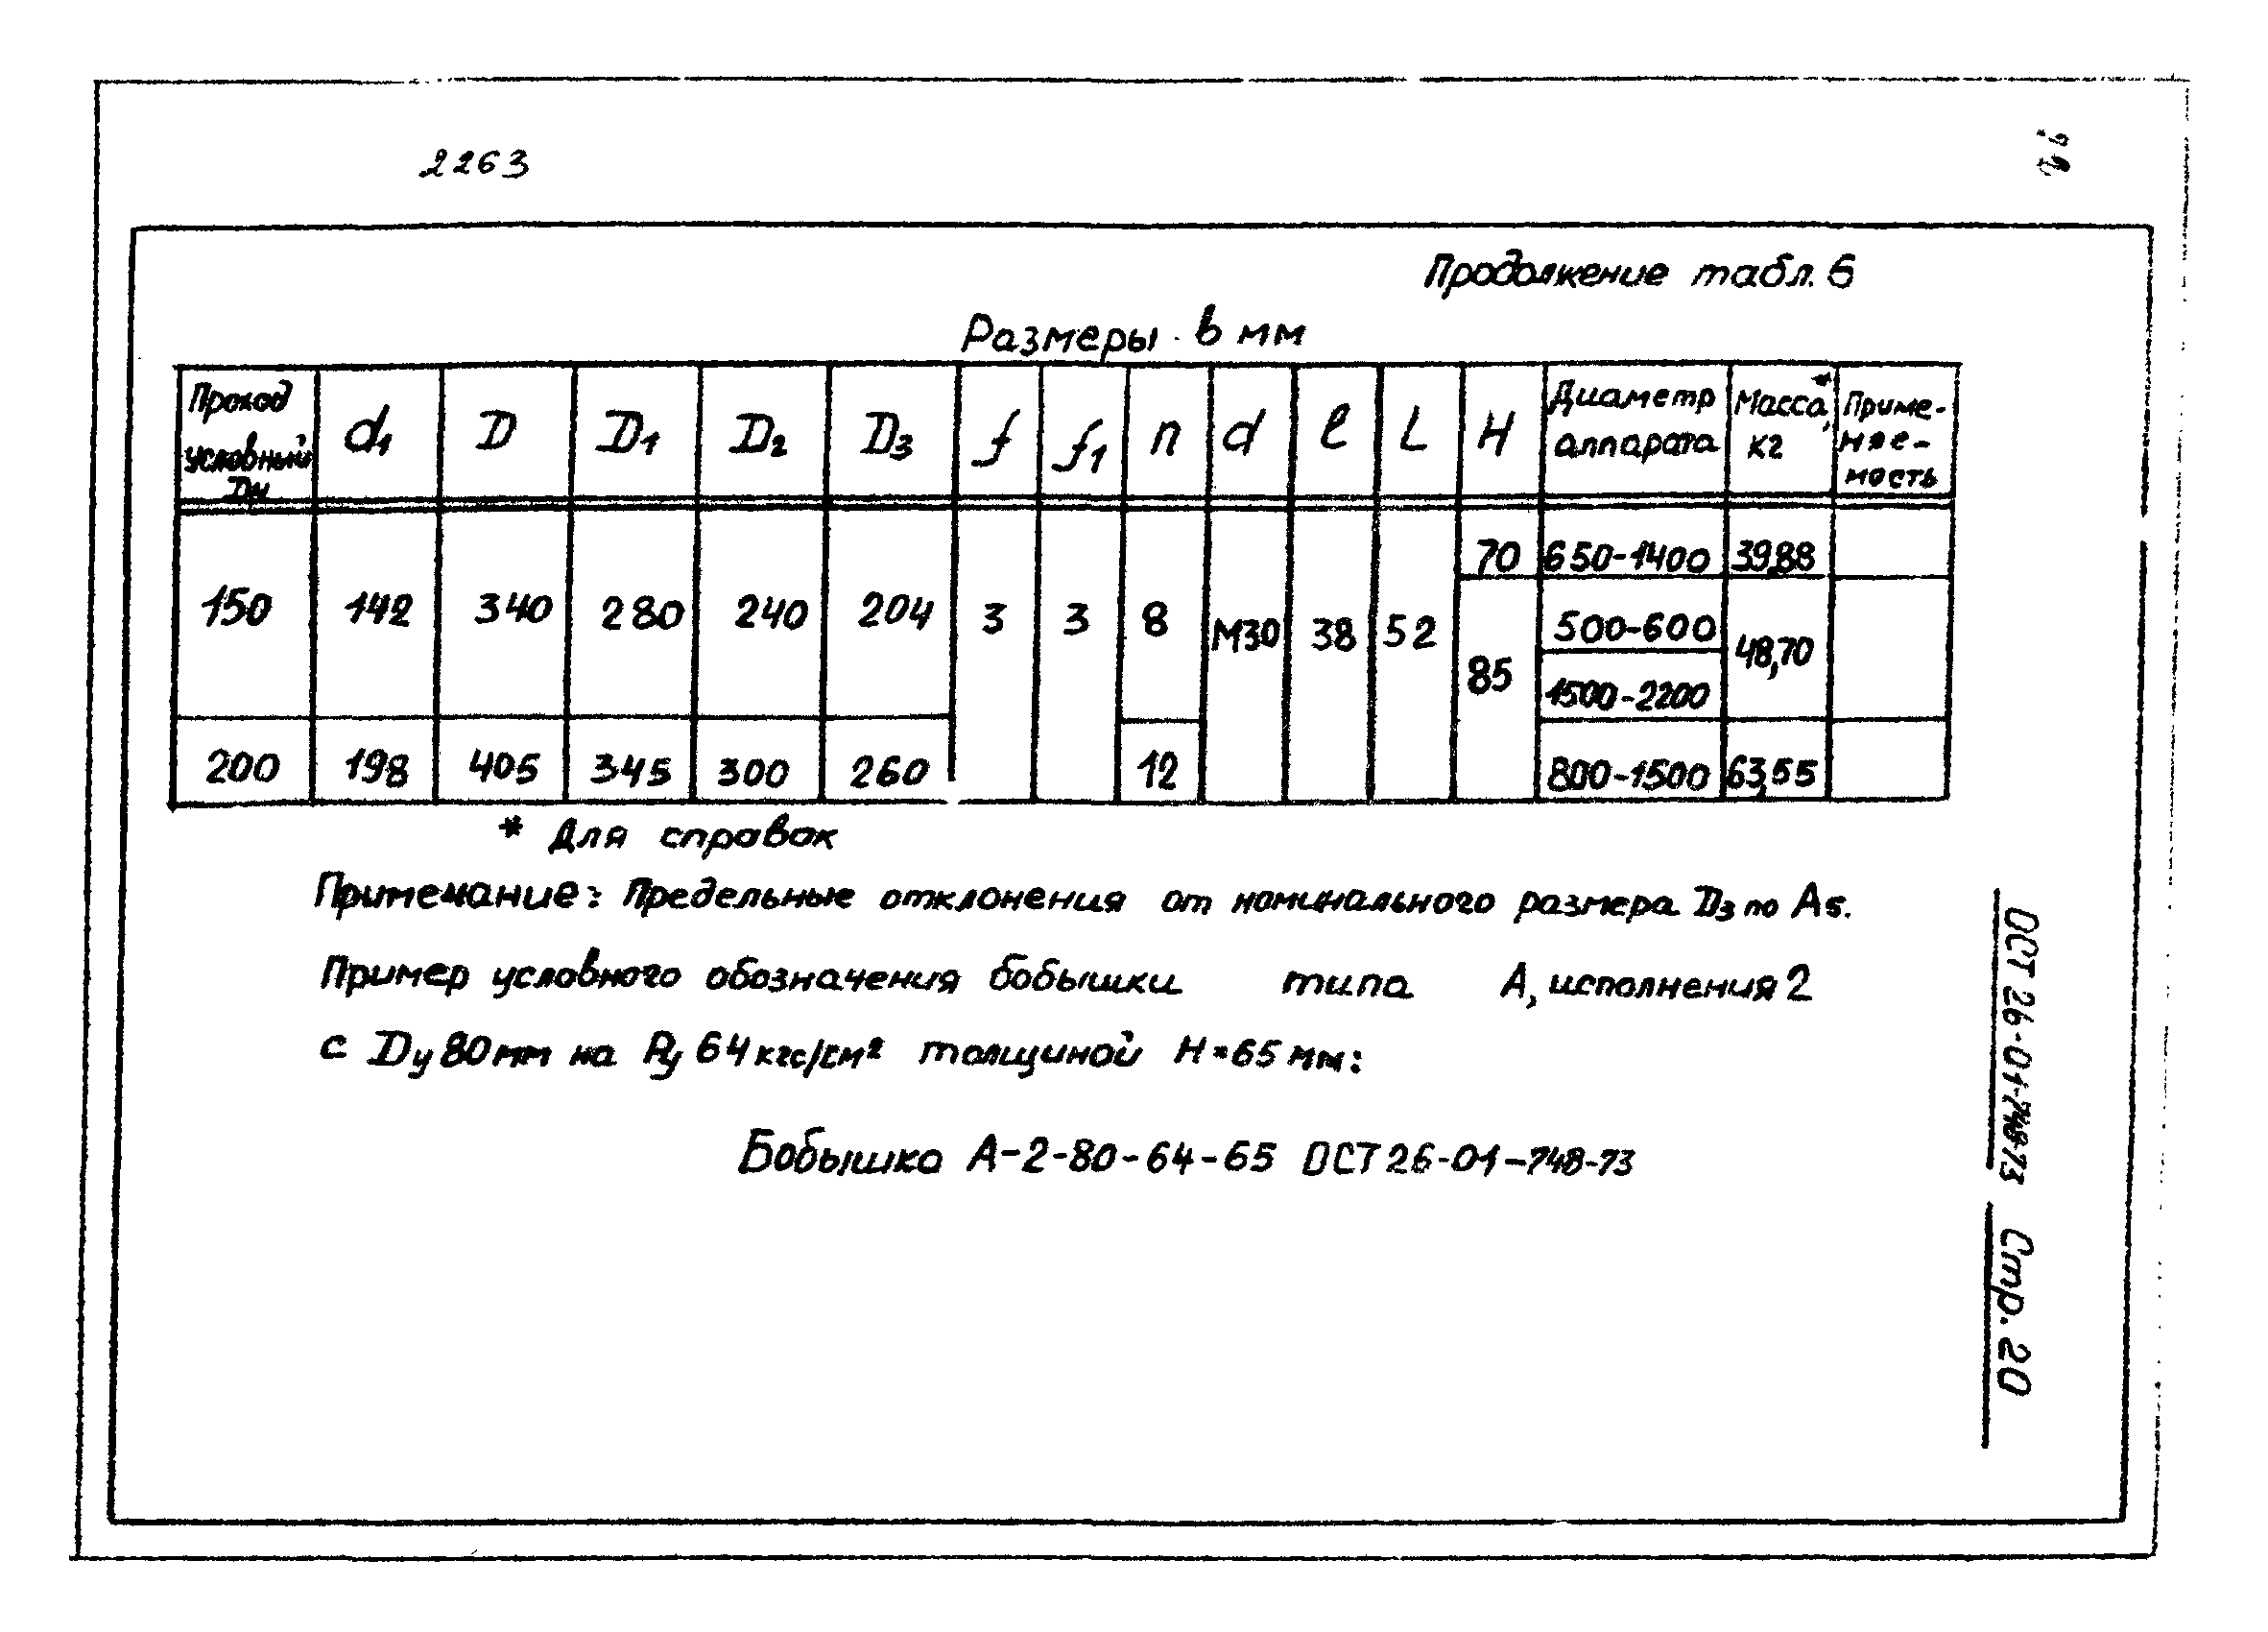 2263
Продолжение табл. 6
Размеры в мм
Проход условный Dy | d1 | D | D1 | D2 | D3 | f | f1 | n | d | l | L | H | Диаметр аппарата | Масса*, кг | Приме-няе-мость
150 | 142 | 340 | 280 | 240 | 204 | 3 | 3 | 8 | М30 | 38 | 52 | 70 | 650-1400 | 39,88
85 | 500-600 | 48,70
1500-2200
200 | 198 | 405 | 345 | 300 | 260 | 12 | 800-1500 | 63,55
* Для справок
Примечание: Предельные отклонения от номинального размера D3 по А5.
Пример условного обозначения бобышки типа А, исполнения 2
с Dy 80 мм на Ру 64 кгс/см² толщиной H=65 мм:
Бобышка А-2-80-64-65 ОСТ 26-01-748-73
ОСТ 26-01-748-73 Стр. 20